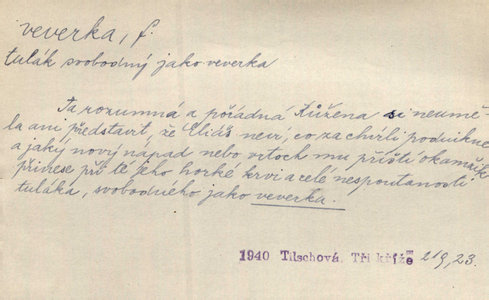 veverka, f.
tulák svobodný jako veverka
Ta rozumná a pořádná Růžena si neumě-
la ani představit, že Eliáš neví, co za chvíli podnikne
a jaký nový nápad nebo vrtoch mu příští okamžik
přinese při té jeho horké krvi a celé nespoutanosti
tuláka, svobodného jako veverka.
1940 Tilschová. Tři kříže 219, 23.